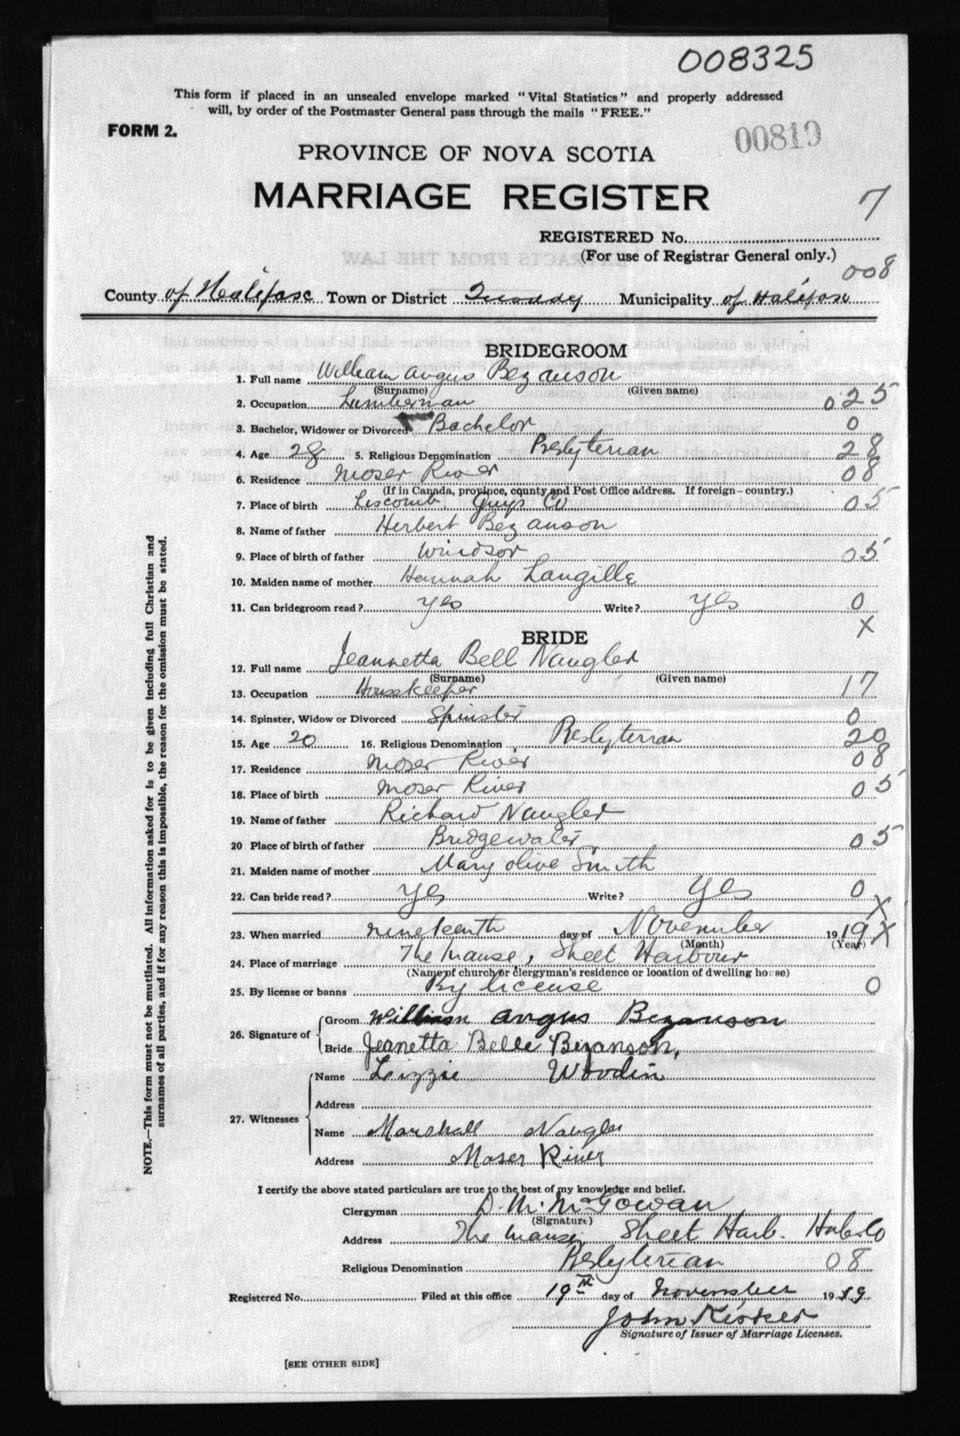 008325
This form if placed in an unsealed envelope marked "Vital Statistics" and properly addressed
will, by order of the Postmaster General pass through the mails "FREE."
FORM 2.
00819
PROVINCE OF NOVA SCOTIA
MARRIAGE REGISTER
7
REGISTERED No.
(For use of Registrar General only.)
008
County of Halifax Town or District Quoddy Municipality of Halifax
BRIDEGROOM
1. Full name William Angus Bezanson
(Surname) (Given name)
2. Occupation Lumberman 025
3. Bachelor, Widower or Divorced Bachelor 0
4. Age 28 5. Religious Denomination Presbyterian 28
6. Residence Moser River 08
(If in Canada, province, county and Post Office address. If foreign-country.)
7. Place of birth Liscomb Guys Co 05
8. Name of father Herbert Bezanson
9. Place of birth of father Windsor 05
10. Maiden name of mother Hannah Langille
11. Can bridegroom read? yes Write? yes 0
X
BRIDE
12. Full name Jeannetta Bell Naugler
(Surname) (Given name)
13. Occupation Housekeeper 17
14. Spinster, Widow or Divorced Spinster 0
15. Age 20 16. Religious Denomination Presbyterian 20
17. Residence Moser River 08
18. Place of birth Moser River 05
19. Name of father Richard Naugler
20 Place of birth of father Bridgewater 05
21. Maiden name of mother Mary Olive Smith
22. Can bride read? yes Write? yes 0
X
23. When married nineteenth day of November 1919 X
(Month) (Year)
24. Place of marriage The Manse, Sheet Harbour
(Name of church or clergyman's residence or location of dwelling house)
25. By license or banns By license 0
26. Signature of
Groom William Angus Bezanson
Bride Jeanetta Belle Bezanson,
27. Witnesses
Name Lizzie Woodin
Address
Name Marshall Naugler
Address Moser River
I certify the above stated particulars are true to the best of my knowledge and belief.
Clergyman D. M. McGowan
(Signature)
Address The Manse Sheet Harb. Hal. Co
Religious Denomination Presbyterian 08
Registered No. Filed at this office 19th day of November 1919
John
Signature of Issuer of Marriage Licenses.
[SEE OTHER SIDE]
NOTE.—This form must not be mutilated. All information asked for is to be given including full Christian and
surnames of all parties, and if for any reason this is impossible, the reason for the omission must be stated.